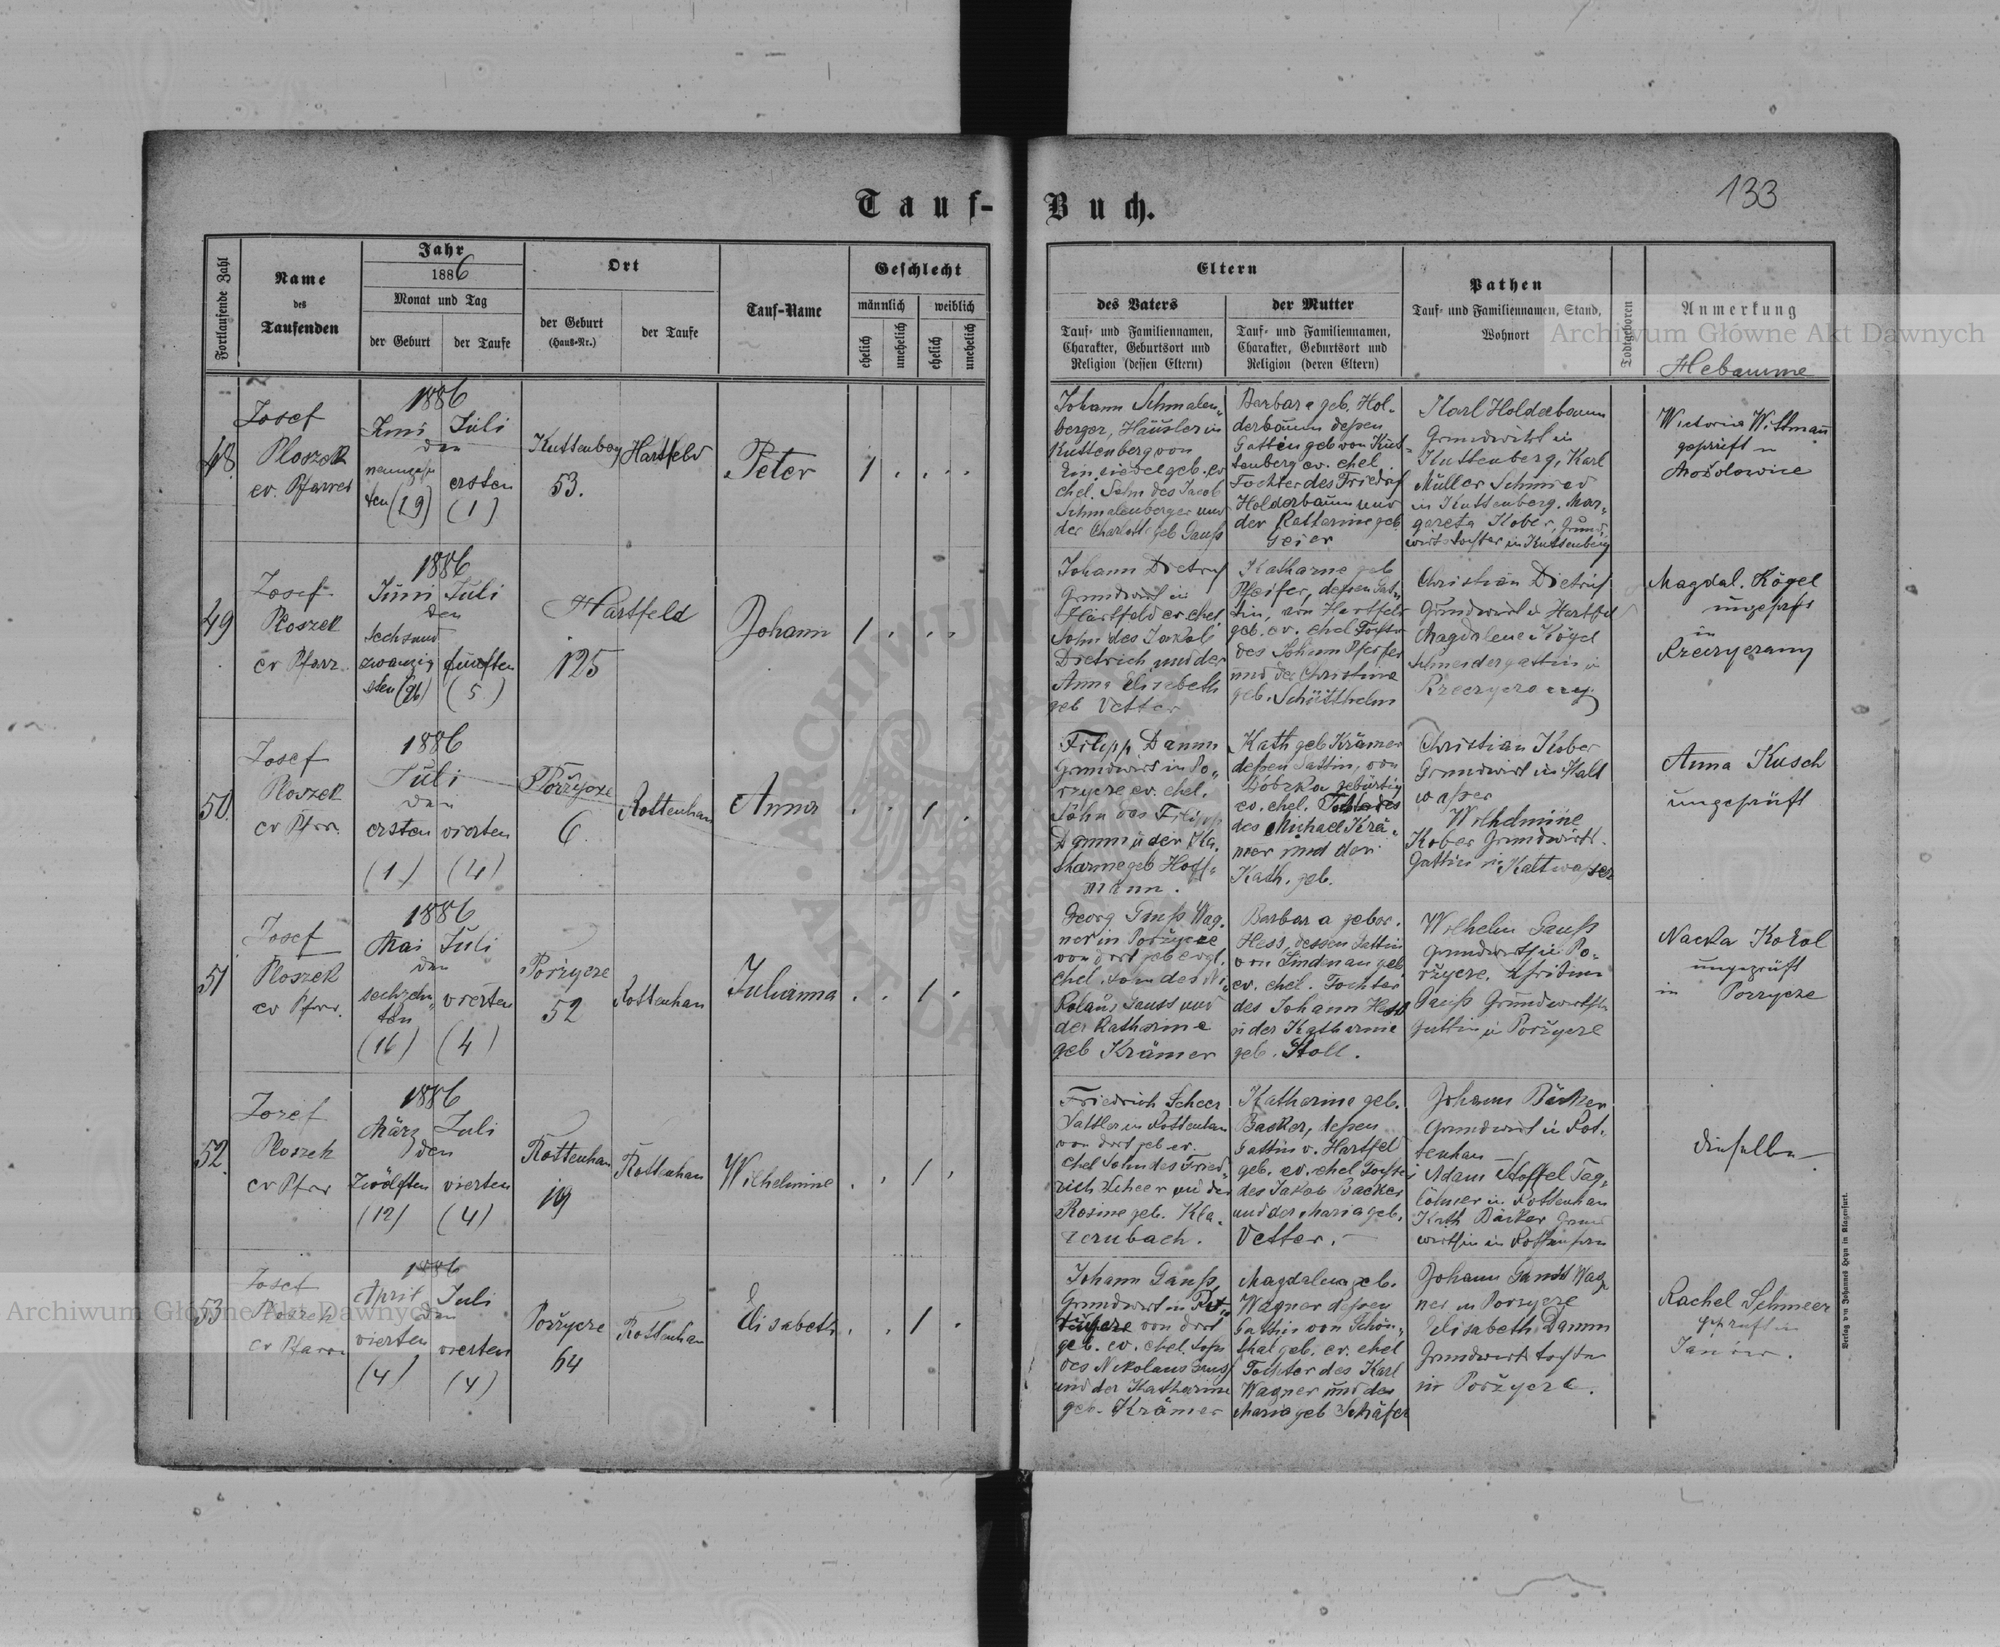 Tauf-Buch.
133
Fortlaufende Zahl
Name
des
Taufenden
Jahr
1886
Monat und Tag
der Geburt
der Taufe
Ort
der Geburt
(Haus-Nr.)
der Taufe
Tauf-Name
Geschlecht
männlich
weiblich
ehelich
unehelich
ehelich
unehelich
Eltern
des Vaters
Tauf- und Familiennamen,
Charakter, Geburtsort und
Religion (dessen Eltern)
der Mutter
Tauf- und Familiennamen,
Charakter, Geburtsort und
Religion (deren Eltern)
Pathen
Tauf- und Familiennamen, Stand,
Wohnort
Todtgeboren
Anmerkung
Hebamme
48
Josef
Ploszek
ev. Pfarrer
1886
Juni Juli
den
ten (19)
ersten
(1)
Kuttenberg
53.
Hartfeld
Peter
1
Johann Schmalen-
berger, Häusler in
Kuttenberg von
Einsiedel geb. ev
ehel. Sohn des Jacob
Schmalenberger und
der Charlott geb Gauß
Barbara geb. Hol-
derbaum deßen
Gattin geb von Kut-
tenberg ev. ehel.
Tochter des Friedrich
Holderbaum und
der Katharine geb
Geier
Karl Holderbaum
Grundwirth in
Kuttenberg, Karl
Müller Schmied
in Kuttenberg. Mar-
gareta Kober, Grund-
wirtstochter in Kuttenberg
Wictoria Wittmann
geprüft in
Mosolowice
49
Josef
Ploszek
ev Pfarr.
1886
Juni Juli
den
sechsund
zwanzig
sten (26)
fünften
(5.)
Hartfeld
125
Johann
1
Johann Dietrich
Grundwirt in
Hartfeld ev. ehel
Sohn des Jakob
Dietrich und der
Anna Elisabeth
geb Vetter
Katharine geb
Pfeifer, deßen Gat-
tin, von Hartfeld
geb. ev. ehel Tochter
des Johann Pfeifer
und der Christine
geb. Schötthelm
Christian Dietrich
Grundwirt in Hartfel
Magdalene Kögel
Schneidergattin in
Magdal. Kögel
ungeprüft
in
50.
Josef
Ploszek
ev Pfrr.
1886
Juli
den
ersten
(1.)
vierten
(4)
Pořzycze
6
Rottenhan
Anna
1
Filipp Damm
Grundwirt in Po-
rzycze ev. ehel.
Sohn des Filipp
Damm u der Ka-
tharine geb Hoff-
mann.
Kath geb Krämer
deßen Gattin, von
Dobrzka gebürtig
ev. ehel. Tochter des
des Michael Krä-
mer und der
Kath. geb.
Christian Kober
Grundwirt in Kalt
waßer
Wilhelmine
Kober Grundwirt
Gattin in Kaltwaßer
Anna Kusch
ungeprüft
51
Josef
Ploszek
ev Pfrr.
1886
Mai Juli
den
sechzehn
ten
(16)
vierten
(4)
Pořzycze
52
Rottenhan
Julianna
1
Georg Gauß Wag-
ner in Pořzycze
von dort geb evgl.
ehel. Sohn des Ni-
kolaus Gauss und
der Katharine
geb Krämer
Barbara gebor.
Hess, dessen Gattin
von Lindenau geb
ev. ehel. Tochter
des Johann Hess
u der Katharine
geb. Stoll.
Wilhelm Gauß
Grundwirth in Po-
řzycze, Christine
Gauß Grundwirths
Gattin in Pořzycze
Nacka Kokol
ungeprüft
in Porzycze
52.
Josef
Ploszek
ev Pfrr
1886
März Juli
den
Zwölften
(12)
vierten
(4)
Rottenhan
19
Rottenhan
Wilhelmine
1
Friedrich Scheer
Sattler in Rottenhan
von dort geb ev.
ehel Sohn des Fried-
rich Scheer und der
Rosine geb. Kla-
dernbach.
Katharine geb.
Backer, deßen
Gattin v. Hartfel
geb. ev. ehel Tochter
des Jakob Backer
und der Maria geb.
Vetter.
Johann Bäcker
Grundwirt in Rot-
tenhan
Adam Stoffel Tag-
löhner in Rottenhan
Kath Bäcker Grund
wirthin in Rottenhan
dieselbe
53
Josef
Ploszek
ev Pfarr
1886
April Juli
den
vierten
(4)
vierten
(4)
Pořzycze
64
Rottenhan
Elisabeth
1
Johann Gauß,
Grundwirt in
von dort
geb. ev. ehel. Sohn
des Nikolaus Gauß
und der Katharine
geb. Krämer
Magdalena geb.
Wagner deßen
Gattin von Schön-
thal geb. ev. ehel
Tochter des Karl
Wagner und der
Maria geb Schäfer
Johann Gauß Wag
ner in Porzycze
Elisabeth Damm
Grundwirts tochter
in Pořzycze.
Rachel Schmeer
geprüft in
Janów.
Verlag von Johannes Heyn in Klagenfurt.
Archiwum Główne Akt Dawnych
Archiwum Główne Akt Dawnych